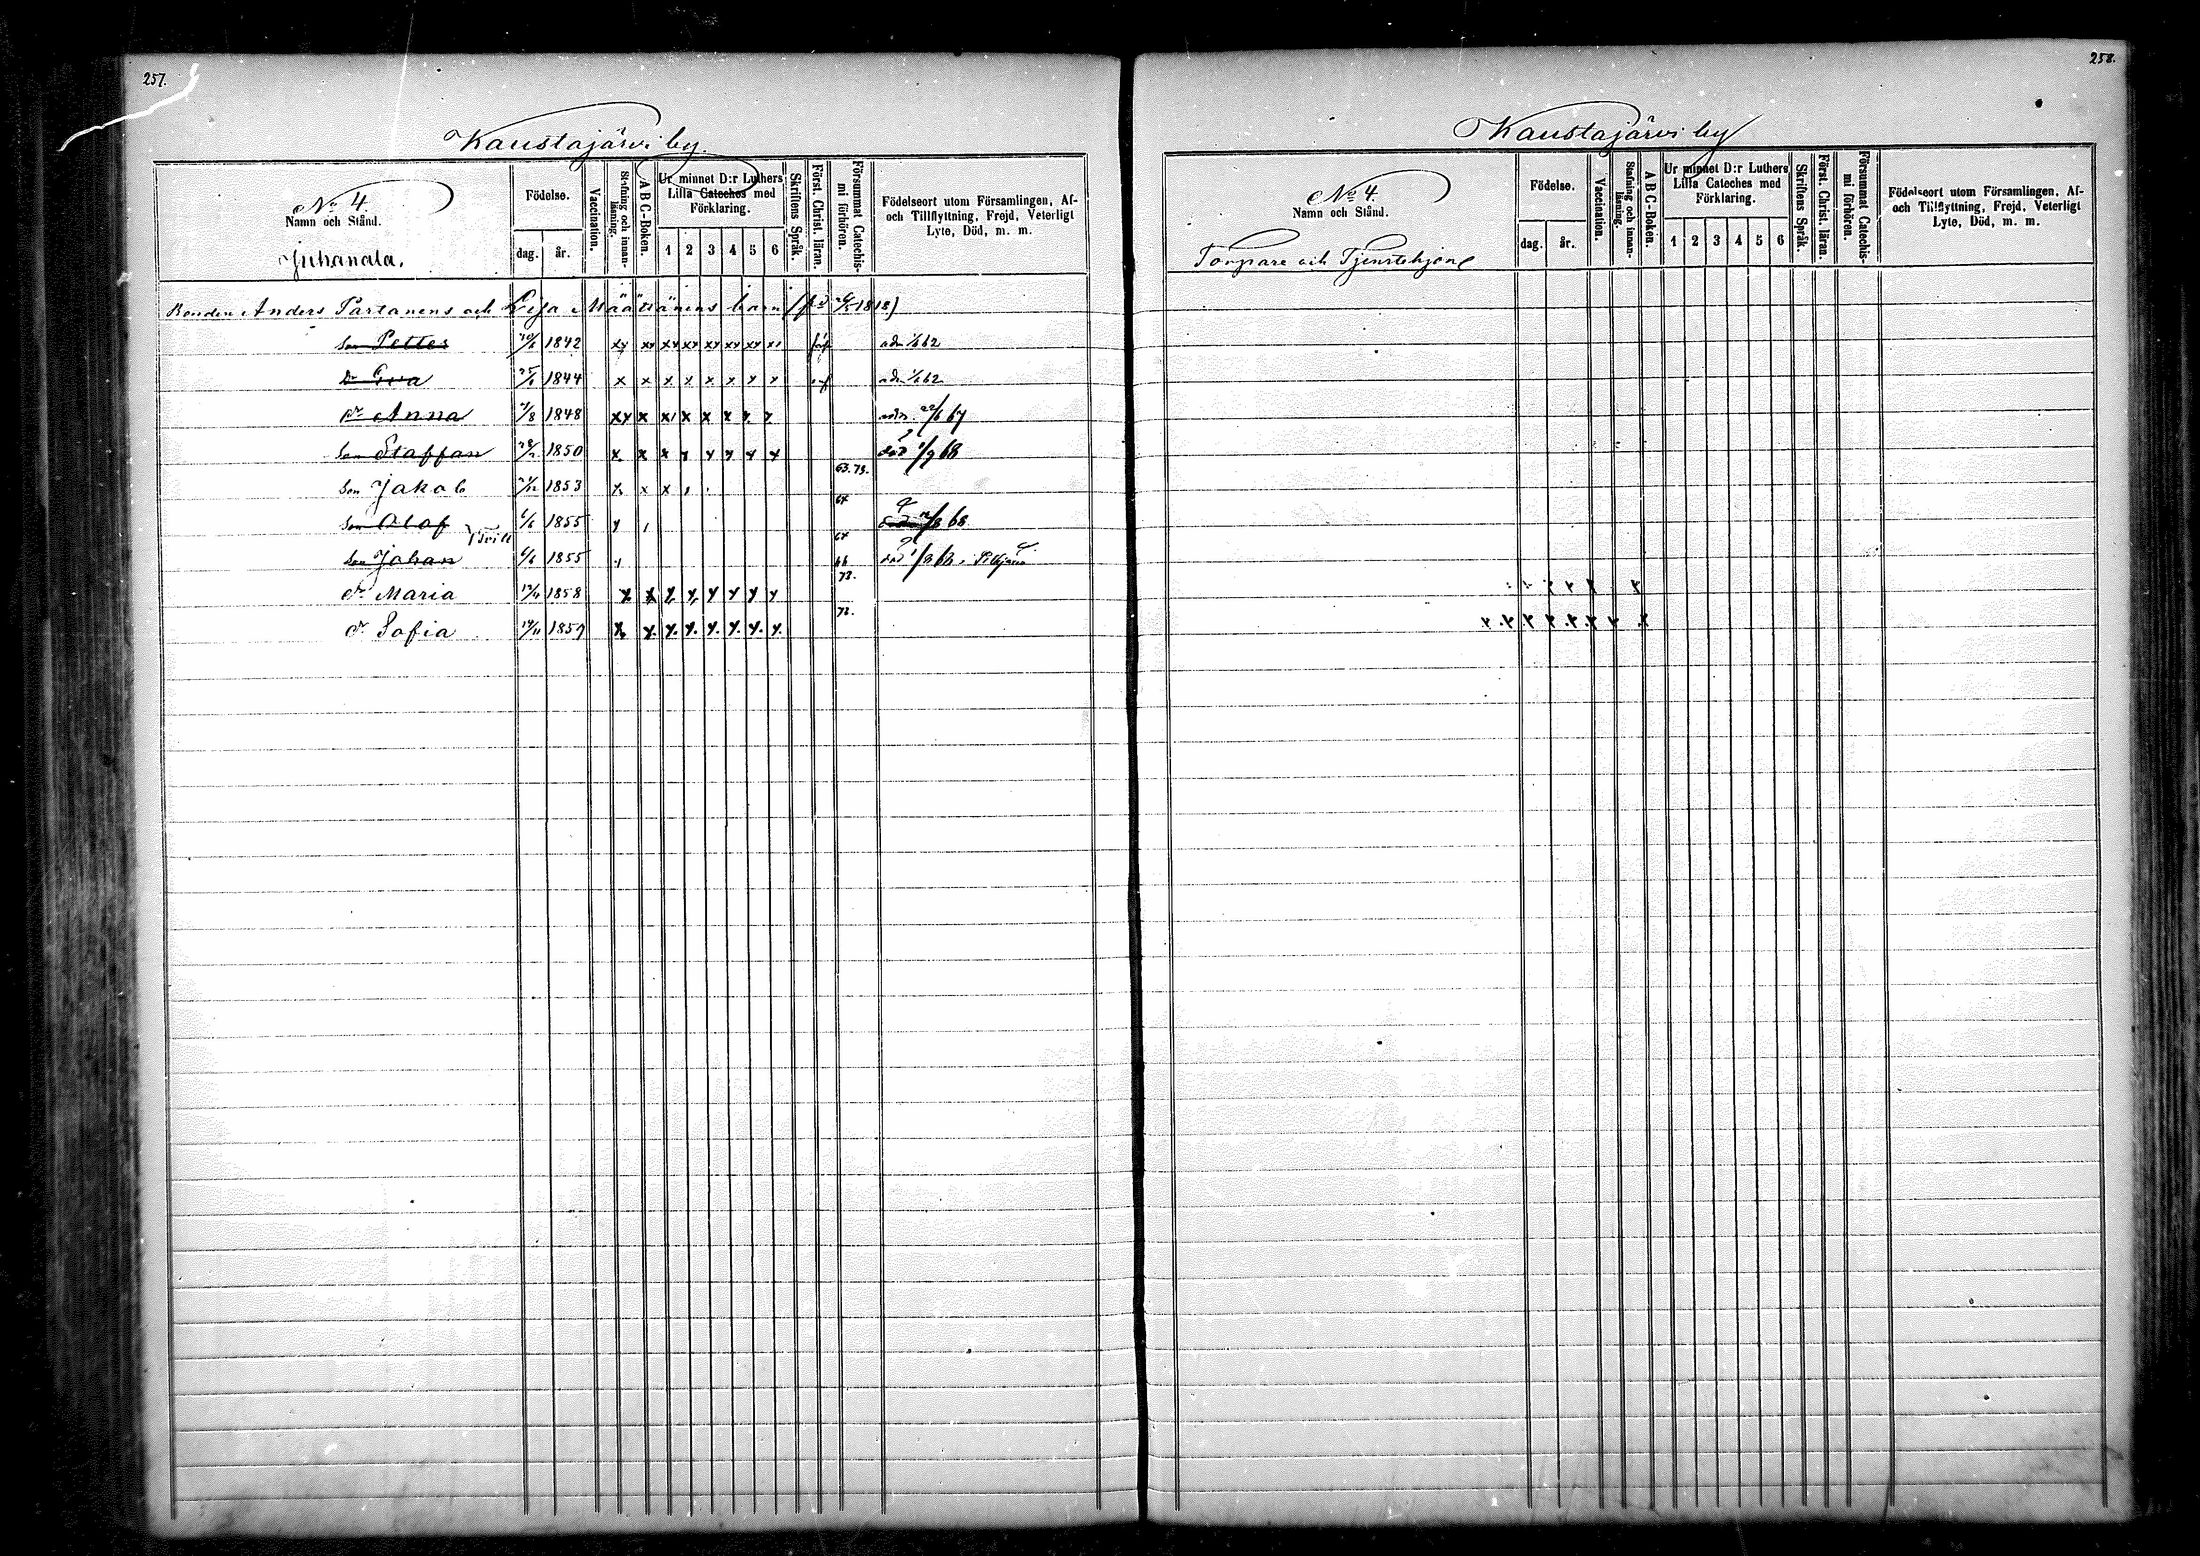 257.
Kaustajärvi by.
No 4.
Namn och Stånd.
Juhanala.
Födelse.
dag. år.
Vaccination.
Stafning och innanläsning.
A B C-Boken.
Ur minnet D:r Luthers
Lilla Cateches med
Förklaring.
1 2 3 4 5 6
Skriftens Språk.
Först. Christ. läran.
Försummat Catechismi förhören.
Födelseort utom Församlingen, Af-
och Tillflyttning, Frejd, Veterligt
Lyte, Död, m. m.
Bonden Anders Partanens och Lisa Määttänens barn 1818)
Son Petter 1842 x x x x x x x x 62
Dr Eva 1844 x x x x x x x x 62
Dr Anna 1/8 1848 x x x x x x x x 67
Son Staffan 1850 x x x x x x x x död 1/9 68
63. 73.
Son Jakob 1853 x x x
64
Son Olof 6/6 1855 68
Tvill
64
Son Johan 6/6 1855 död 1/8 68
66
73.
Dr Maria 1858 x x x x x x x x
73.
Dr Sofia 1859 x x x x x x x x
258.
Kaustajärvi by
No 4.
Namn och Stånd.
Torpare och Tjenstehjon
Födelse.
dag. år.
Vaccination.
Stafning och innanläsning.
A B C-Boken.
Ur minnet D:r Luthers
Lilla Cateches med
Förklaring.
1 2 3 4 5 6
Skriftens Språk.
Först. Christ. läran.
Försummat Catechismi förhören.
Födelseort utom Församlingen, Af-
och Tillflyttning, Frejd, Veterligt
Lyte, Död, m. m.